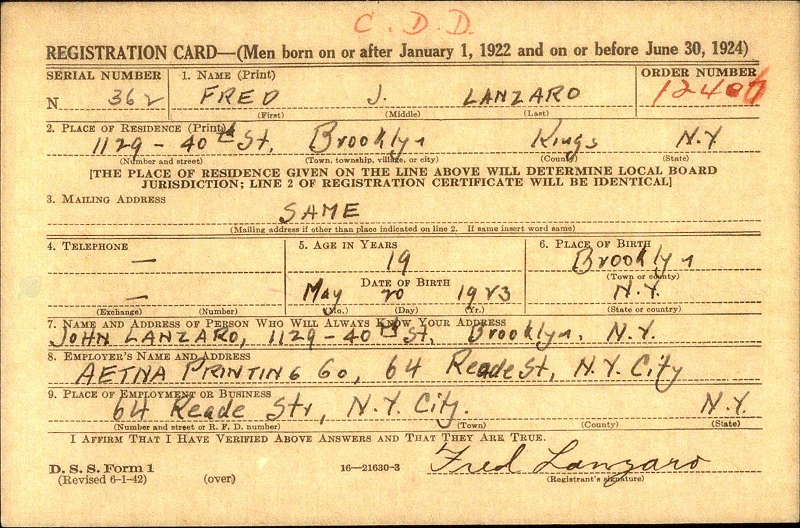 C.D.D.
REGISTRATION CARD—(Men born on or after January 1, 1922 and on or before June 30, 1924)
SERIAL NUMBER 1. NAME (Print) ORDER NUMBER
N 362 FRED J. LANZARO
(First) (Middle) (Last)
2. PLACE OF RESIDENCE (Print)
1129 - 40th St, Brooklyn Kings N.Y.
(Number and street) (Town, township, village, or city) (County) (State)
[THE PLACE OF RESIDENCE GIVEN ON THE LINE ABOVE WILL DETERMINE LOCAL BOARD
JURISDICTION; LINE 2 OF REGISTRATION CERTIFICATE WILL BE IDENTICAL]
3. MAILING ADDRESS
SAME
(Mailing address if other than place indicated on line 2. If same insert word same)
4. TELEPHONE 5. AGE IN YEARS 6. PLACE OF BIRTH
— 19 Brooklyn
(Town or county)
DATE OF BIRTH
— May 20 1923 N.Y.
(Exchange) (Number) (Mo.) (Day) (Yr.) (State or country)
7. NAME AND ADDRESS OF PERSON WHO WILL ALWAYS KNOW YOUR ADDRESS
JOHN LANZARO, 1129 - 40th St, Brooklyn, N.Y.
8. EMPLOYER'S NAME AND ADDRESS
AETNA PRINTING Co, 64 Reade St, N.Y. City
9. PLACE OF EMPLOYMENT OR BUSINESS
64 Reade Str, N.Y. City. N.Y.
(Number and street or R. F. D. number) (Town) (County) (State)
I AFFIRM THAT I HAVE VERIFIED ABOVE ANSWERS AND THAT THEY ARE TRUE.
D. S. S. Form 1 16—21630-3 Fred Lanzaro
(Revised 6-1-42) (over) (Registrant's signature)